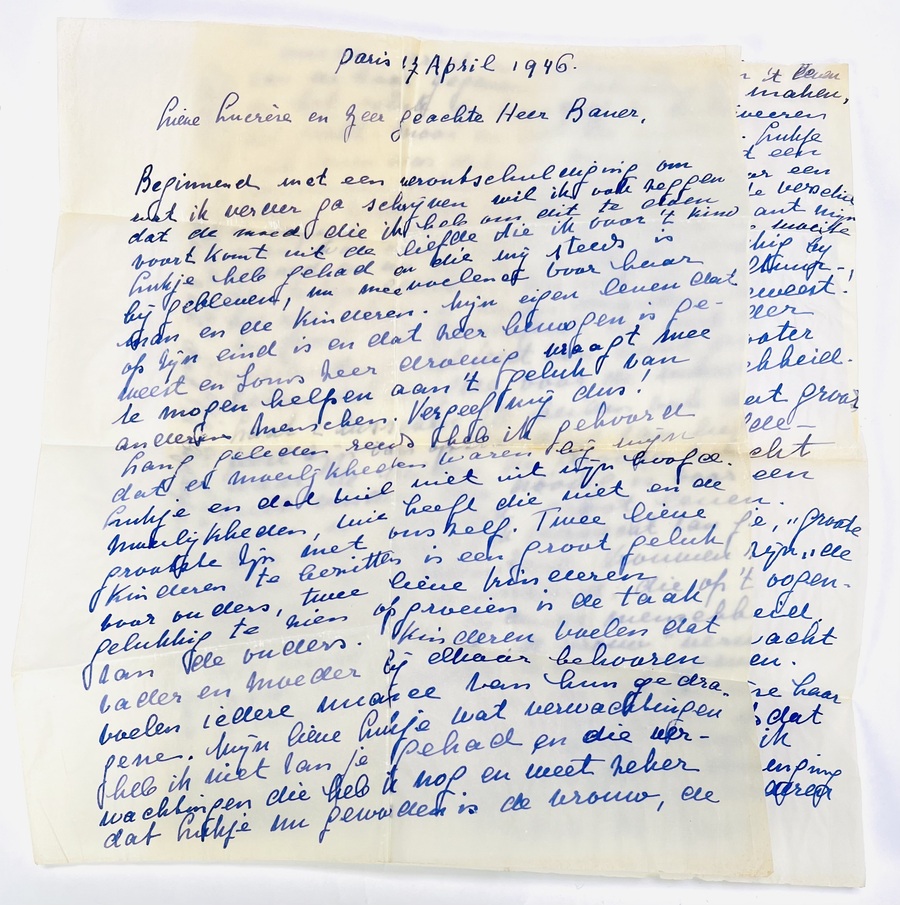 Paris 17 April 1946.
Lieve Lucrèse en Zeer geachte Heer Bauer,
Beginnend met een verontschuldiging om
wat ik verder ga schrijven wil ik ook zeggen
dat de moed die ik heb om dit te doen
voort komt uit de liefde die ik voor 't kind
Lukje heb gehad en die mij steeds is
bij gebleven, nu meevoelend voor haar
man en de kinderen. Mijn eigen leven dat
op zijn eind is en dat zeer bewogen is ge-
weest en soms zeer droevig vraagt mee
te mogen helpen aan 't geluk van
anderen menschen. Vergeef mij dus!
Lang geleden reeds heb ik gehoord
dat er moeilijkheden waren bij mijn
Lukje en dat wil niet uit mijn hoofd.
Moeilijkheden, wie heeft die niet en de
grootste zijn met ons zelf. Twee lieve
kinderen te bezitten is een groot geluk
voor ouders, twee lieve kinderen
gelukkig te zien opgroeien is de taak
van de ouders. Kinderen voelen dat
vader en moeder bij elkaar behooren
voelen iedere nuance van hun gedra-
gene. Mijn lieve Lukje wat verwachtingen
heb ik niet van je gehad en die ver-
wachtingen die heb ik nog en weet zeker
dat Lukje nu geworden is de vrouw, de
't leven
maken,
Lukje
t een
een
mijn
moeite
bij
eweest.
chheid.
groot
een
"groote
zijn "de
oogen-
acht
en.
haar
dat
ik